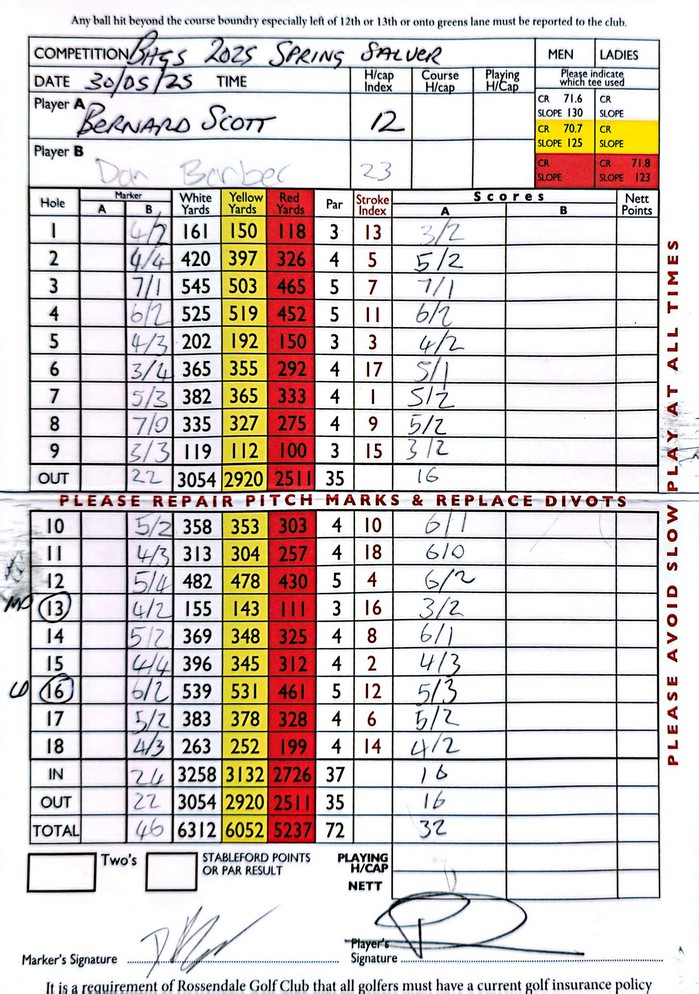 Any ball hit beyond the course boundry especially left of 12th or 13th or onto greens lane must be reported to the club.
COMPETITION BHGS 2025 SPRING SALVER MEN LADIES
DATE 30/05/25 TIME H/cap Index Course H/cap Playing H/Cap Please indicate which tee used
Player A BERNARD SCOTT 12 CR 71.6 SLOPE 130 CR SLOPE
CR 70.7 SLOPE 125 CR SLOPE
Player B Dan Barber 23 CR SLOPE CR 71.8 SLOPE 123
Hole Marker A B White Yards Yellow Yards Red Yards Par Stroke Index Scores A B Nett Points
1 4/2 161 150 118 3 13 3/2
2 4/4 420 397 326 4 5 5/2
3 7/1 545 503 465 5 7 7/1
4 6/2 525 519 452 5 11 6/2
5 4/3 202 192 150 3 3 4/2
6 3/4 365 355 292 4 17 5/1
7 5/3 382 365 333 4 1 5/2
8 7/0 335 327 275 4 9 5/2
9 3/3 119 112 100 3 15 3/2
OUT 22 3054 2920 2511 35 16
PLEASE REPAIR PITCH MARKS & REPLACE DIVOTS
10 5/2 358 353 303 4 10 6/1
11 4/3 313 304 257 4 18 6/0
12 5/4 482 478 430 5 4 6/2
13 4/2 155 143 111 3 16 3/2
14 5/2 369 348 325 4 8 6/1
15 4/4 396 345 312 4 2 4/3
16 6/2 539 531 461 5 12 5/3
17 5/2 383 378 328 4 6 5/2
18 4/3 263 252 199 4 14 4/2
IN 24 3258 3132 2726 37 16
OUT 22 3054 2920 2511 35 16
TOTAL 46 6312 6052 5237 72 32
Two's STABLEFORD POINTS OR PAR RESULT PLAYING H/CAP
NETT
Marker's Signature Player's Signature
It is a requirement of Rossendale Golf Club that all golfers must have a current golf insurance policy
PLEASE AVOID SLOW PLAY AT ALL TIMES